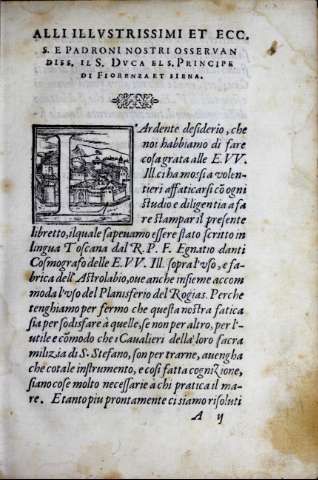 ALLI ILLVSTRISSIMI ET ECC.
S. E PADRONI NOSTRI OSSERVAN
DISS. IL S. DVCA EL S. PRINCIPE
DI FIORENZA ET SIENA.
L'Ardente desiderio, che
noi habbiamo di fare
cosa grata alle E. VV.
Ill. ci ha mossi a volen-
tieri affaticarsi cō ogni
studio e diligentia a fa
re stampar il presente
libretto, il quale sapevamo essere stato scritto in
lingua Toscana dal R. P. F. Egnatio danti
Cosmografo delle E. VV. Ill. sopra l'vso, e fa-
brica dell'Astrolabio, oue anche insieme accom
moda l'vso del Planisferio del Rogias. Perche
tenghiamo per fermo che questa nostra fatica
sia per sodisfare à quelle, se non per altro, per l'-
utile e cōmodo che i Caualieri della loro sacra
milizia di S. Stefano, son per trarne, auengha
che cotale instrumento, e cosi fatta cognizione,
siano cose molto necessarie a chi pratica il ma-
re. Et tanto piu prontamente ci siamo risoluti
A ij